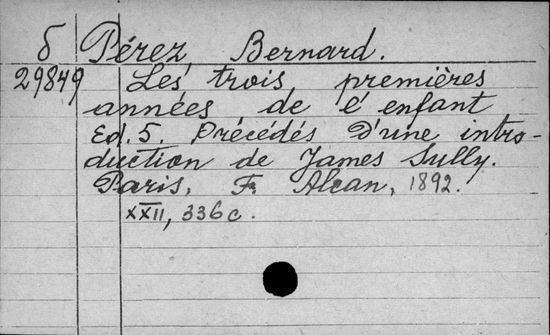 б Pérez, Bernard.
29849 Les trois premières
années de l'enfant
Ed. 5. Précédés D'une intro-
duction de James Sully.
Paris, F. Alcan, 1892.
XXII, 336 c.